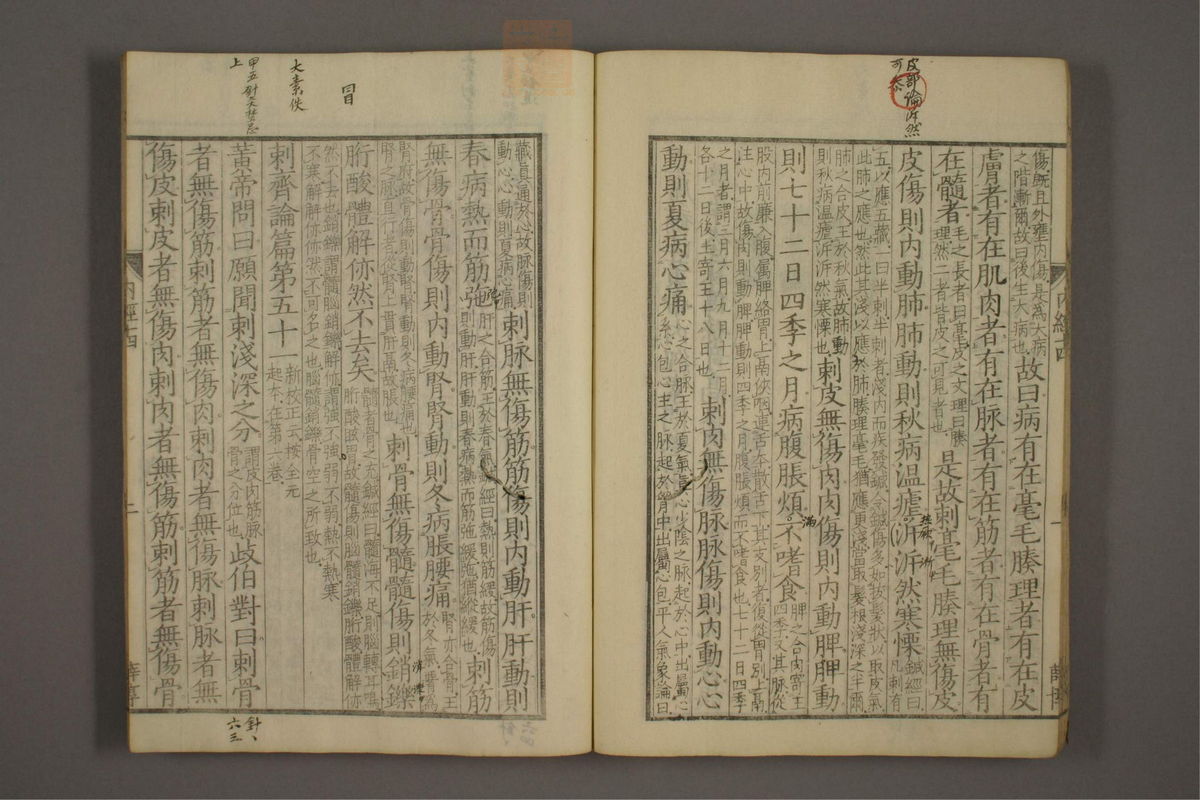 皮部論泝然
可参
傷既且外壅內傷是為大病
之階漸爾故曰後生大病也
故曰病有在毫毛腠理者有在皮
膚者有在肌肉者有在脉者有在筋者有在骨者有
在髓者
毛之長者曰毫皮之文理曰腠
理然二者皆皮之可見者也
是故刺毫毛腠理無傷皮
皮傷則內動肺肺動則秋病溫瘧泝泝然寒慄
鍼經曰
凡刺有
五以應五藏一曰半刺半刺者淺內而疾發鍼令鍼傷多如拔髮狀以取皮氣
此肺之應也然此其淺以應於肺腠理毫毛猶應更淺當取髮根淺深之半爾
肺之合皮王於秋氣故肺動
則秋病溫瘧泝泝然寒慄也
刺皮無傷肉肉傷則內動脾脾動
則七十二日四季之月病腹脹煩不嗜食
脾之合肉寄王
四季又其脉從
股內前廉入腹屬脾絡胃上鬲俠咽連舌本散舌下其支別者復從胃別上鬲
注心中故傷肉則動脾脾動則四季之月腹脹煩而不嗜食也七十二日四季
之月者謂三月六月九月十二月
各十二日後土寄王十八日也
刺肉無傷脉脉傷則內動心心
動則夏病心痛
心之合脉王於夏氣真心少陰之脉起於心中出屬心
系心包心主之脉起於胷中出屬心包平人氣象論曰
滿
內經十四
一
藏真通於心故脉傷則
動心心動則夏病心痛
刺脉無傷筋筋傷則內動肝肝動則
春病熱而筋弛
肝之合筋王於春氣鍼經曰熱則筋緩故筋傷
則動肝肝動則春病熱而筋弛緩弛猶縱緩也
刺筋
無傷骨骨傷則內動腎腎動則冬病脹腰痛
腎之合骨王
於冬氣腰為
腎府故骨傷則動腎腎動則冬病腰痛也
腎之脉直行者從腎上貫肝鬲故脹也
刺骨無傷髓髓傷則銷鑠
胻酸體解㑊然不去矣
髓者骨之充鍼經曰髓海不足則腦轉耳鳴
胻酸眩冒故髓傷則腦髓銷鑠胻酸體解㑊
然不去也銷鑠謂髓腦銷鑠解㑊謂強不強弱不弱熱不熱寒
不寒解解㑊㑊然不可名之也腦髓銷鑠骨空之所致也
刺齊論篇第五十一
新校正云按全元
起本在第六卷
黃帝問曰願聞刺淺深之分
謂皮肉筋脉
骨之分位也
歧伯對曰刺骨
者無傷筋刺筋者無傷肉刺肉者無傷脉刺脉者無
傷皮刺皮者無傷肉刺肉者無傷筋刺筋者無傷骨
冐
大素佚
甲五針灸禁忌
上
內經十四
二
針
六三